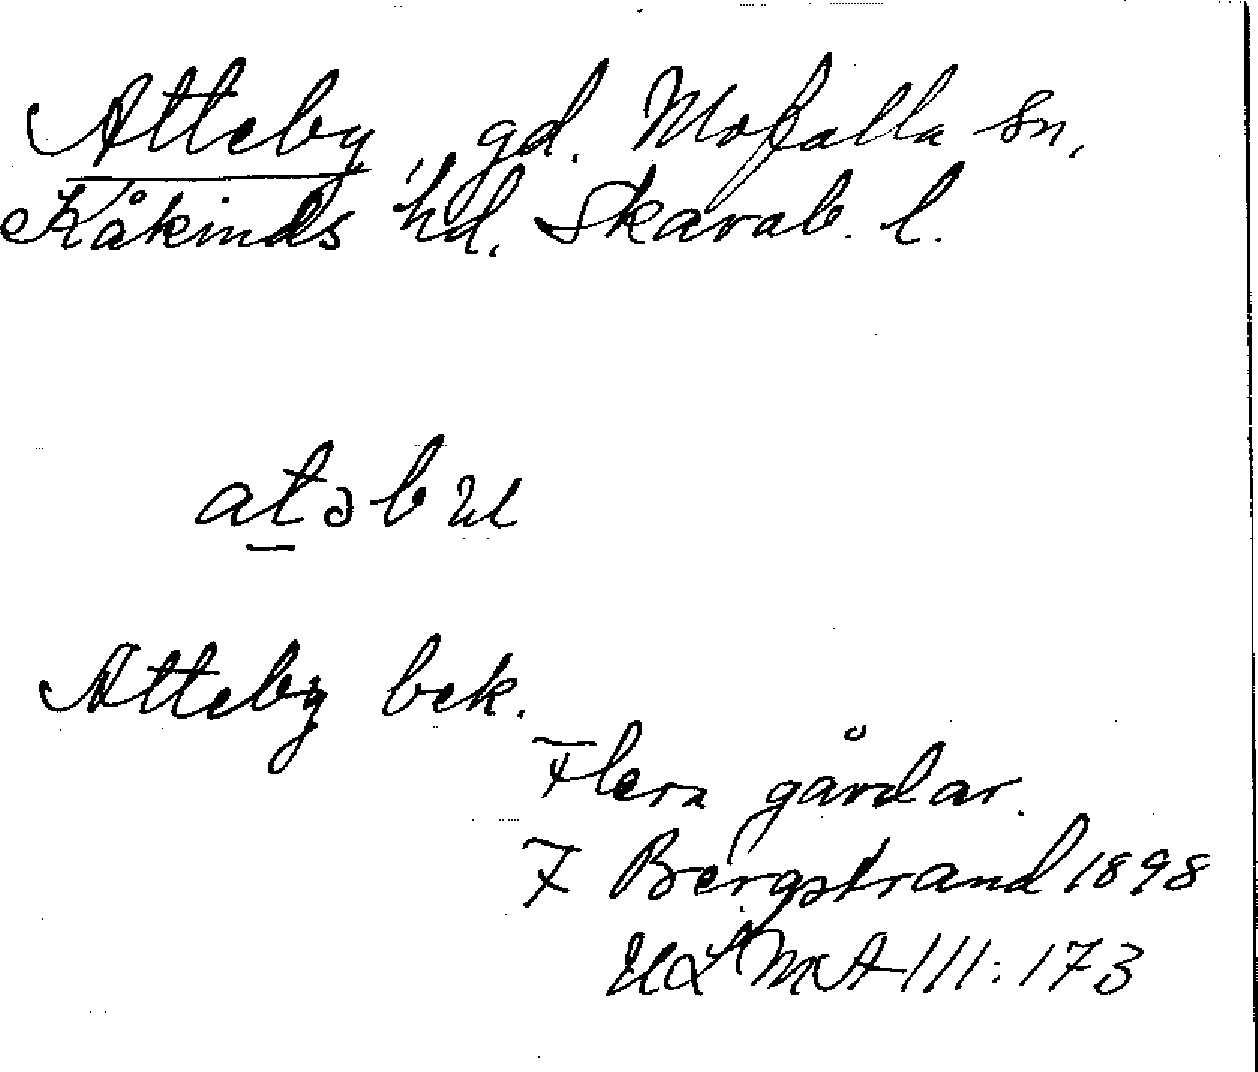 Atteby, gd. Mofalla sn,
Kåkinds hd. Skarab. l.
atəbu
Atteby bek.
Flera gårdar.
F Bergstrand 1898
ULMA 111:173